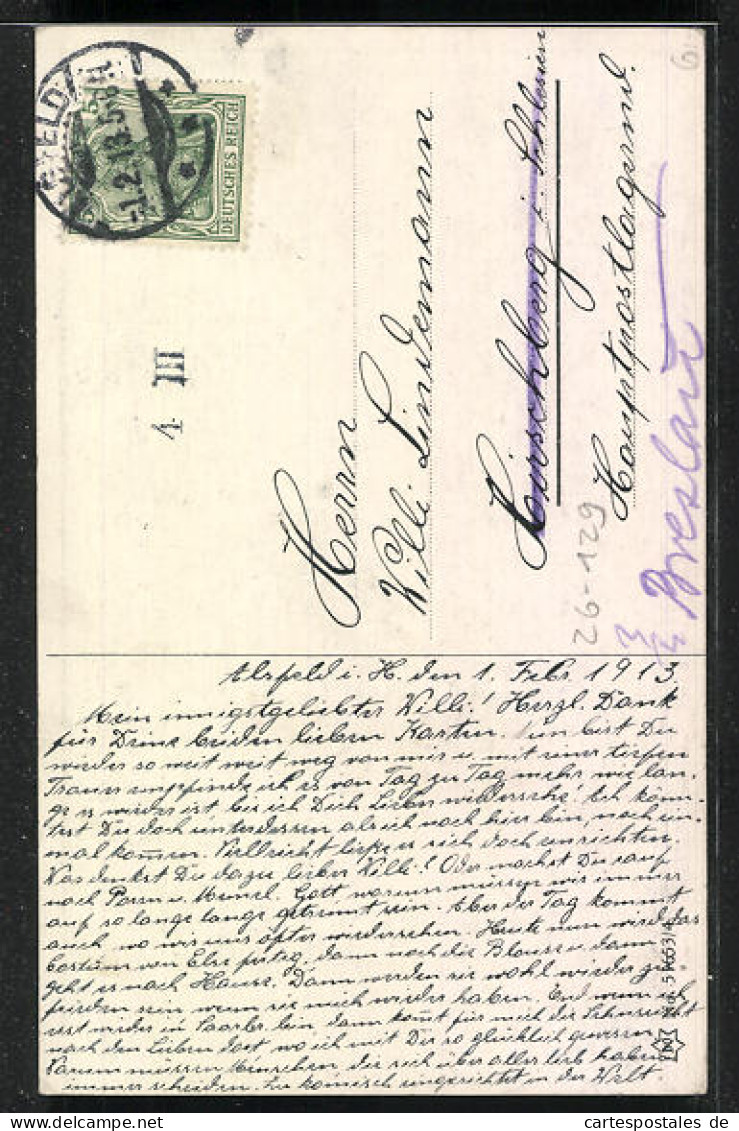 DEUTSCHES REICH
-1.2.13.5-
1 III
Herrn
Willi Lindemann
Hirschberg i. Schlesien
Hauptpostlagernd.
Breslau
26-129
6
Alsfeld i. H. den 1. Febr. 1913.
Mein innigstgeliebter Willi! Herzl. Dank
für Deine beiden lieben Karten. Nun bist Du
wieder so weit weit weg von mir u. mit einer tiefen
Trauer empfinde ich es von Tag zu Tag mehr wie lan-
ge es wieder ist bis ich Dich Lieber wiedersehe! Ach könn-
test Du doch unterdessen als ich noch hier bin, noch ein-
mal kommen. Vielleicht ließe es sich doch einrichten.
Was denkst Du dazu lieber Willi? Oder machst Du auf
nach Gott, warum müssen wir immer
auf so lange lange getrennt sein. Aber der Tag kommt
auch wo wir uns öfter wiedersehen. Heute nun wird das
Costüm von Else fertig, dann noch die Blouse u. dann
geht es nach Hause. Dann werden sie wohl wieder zu-
frieden sein wenn sie mich wieder haben. Und wenn ich
erst wieder in bin, dann kommt für mich die Sehnsucht
nach den Lieben dort, wo ich mit Dir so glücklich gewesen.
Warum müssen Menschen, die sich über alles lieb haben
immer scheiden. Zu komisch eingerichtet in der Welt.
cartespostales-de-delcampe.net